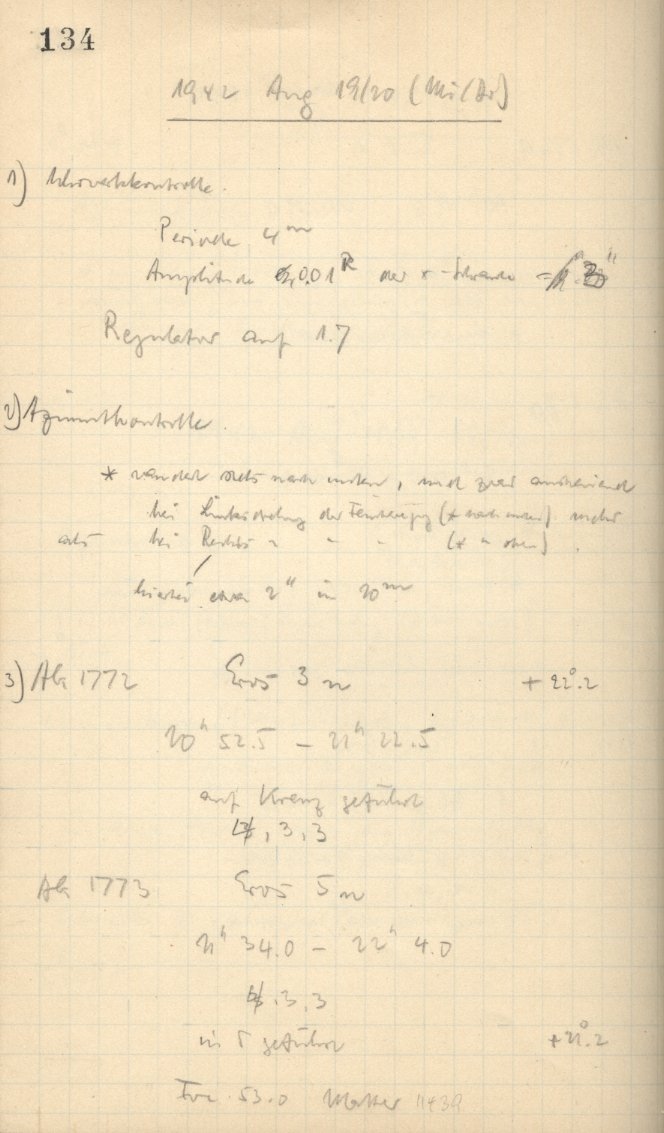 134
1942 Aug 19/20 (Mi/Do)
1) Uhrwerkkontrolle.
Periode 4ᵐ
Amplitude 0,01ᴿ der x-Schraube =
Regulator auf 1.7
2) Azimutkontrolle.
* wandert stets nach unten, und zwar anscheinend
bei Linksdrehung der Feinbewegung (* nach unten) mehr
als bei Rechts " " " (* " oben).
hierbei etwa 2" in 20ᵐ
3) AG 1772 Eros 3 n + 22°.2
20ʰ 52.5 – 21ʰ 22.5
auf Kreuz geführt
, 3, 3
AG 1773 Eros 5 n
21ʰ 34.0 – 22ʰ 4.0
, 3, 3
in geführt +21°.2
Foc. 53.0